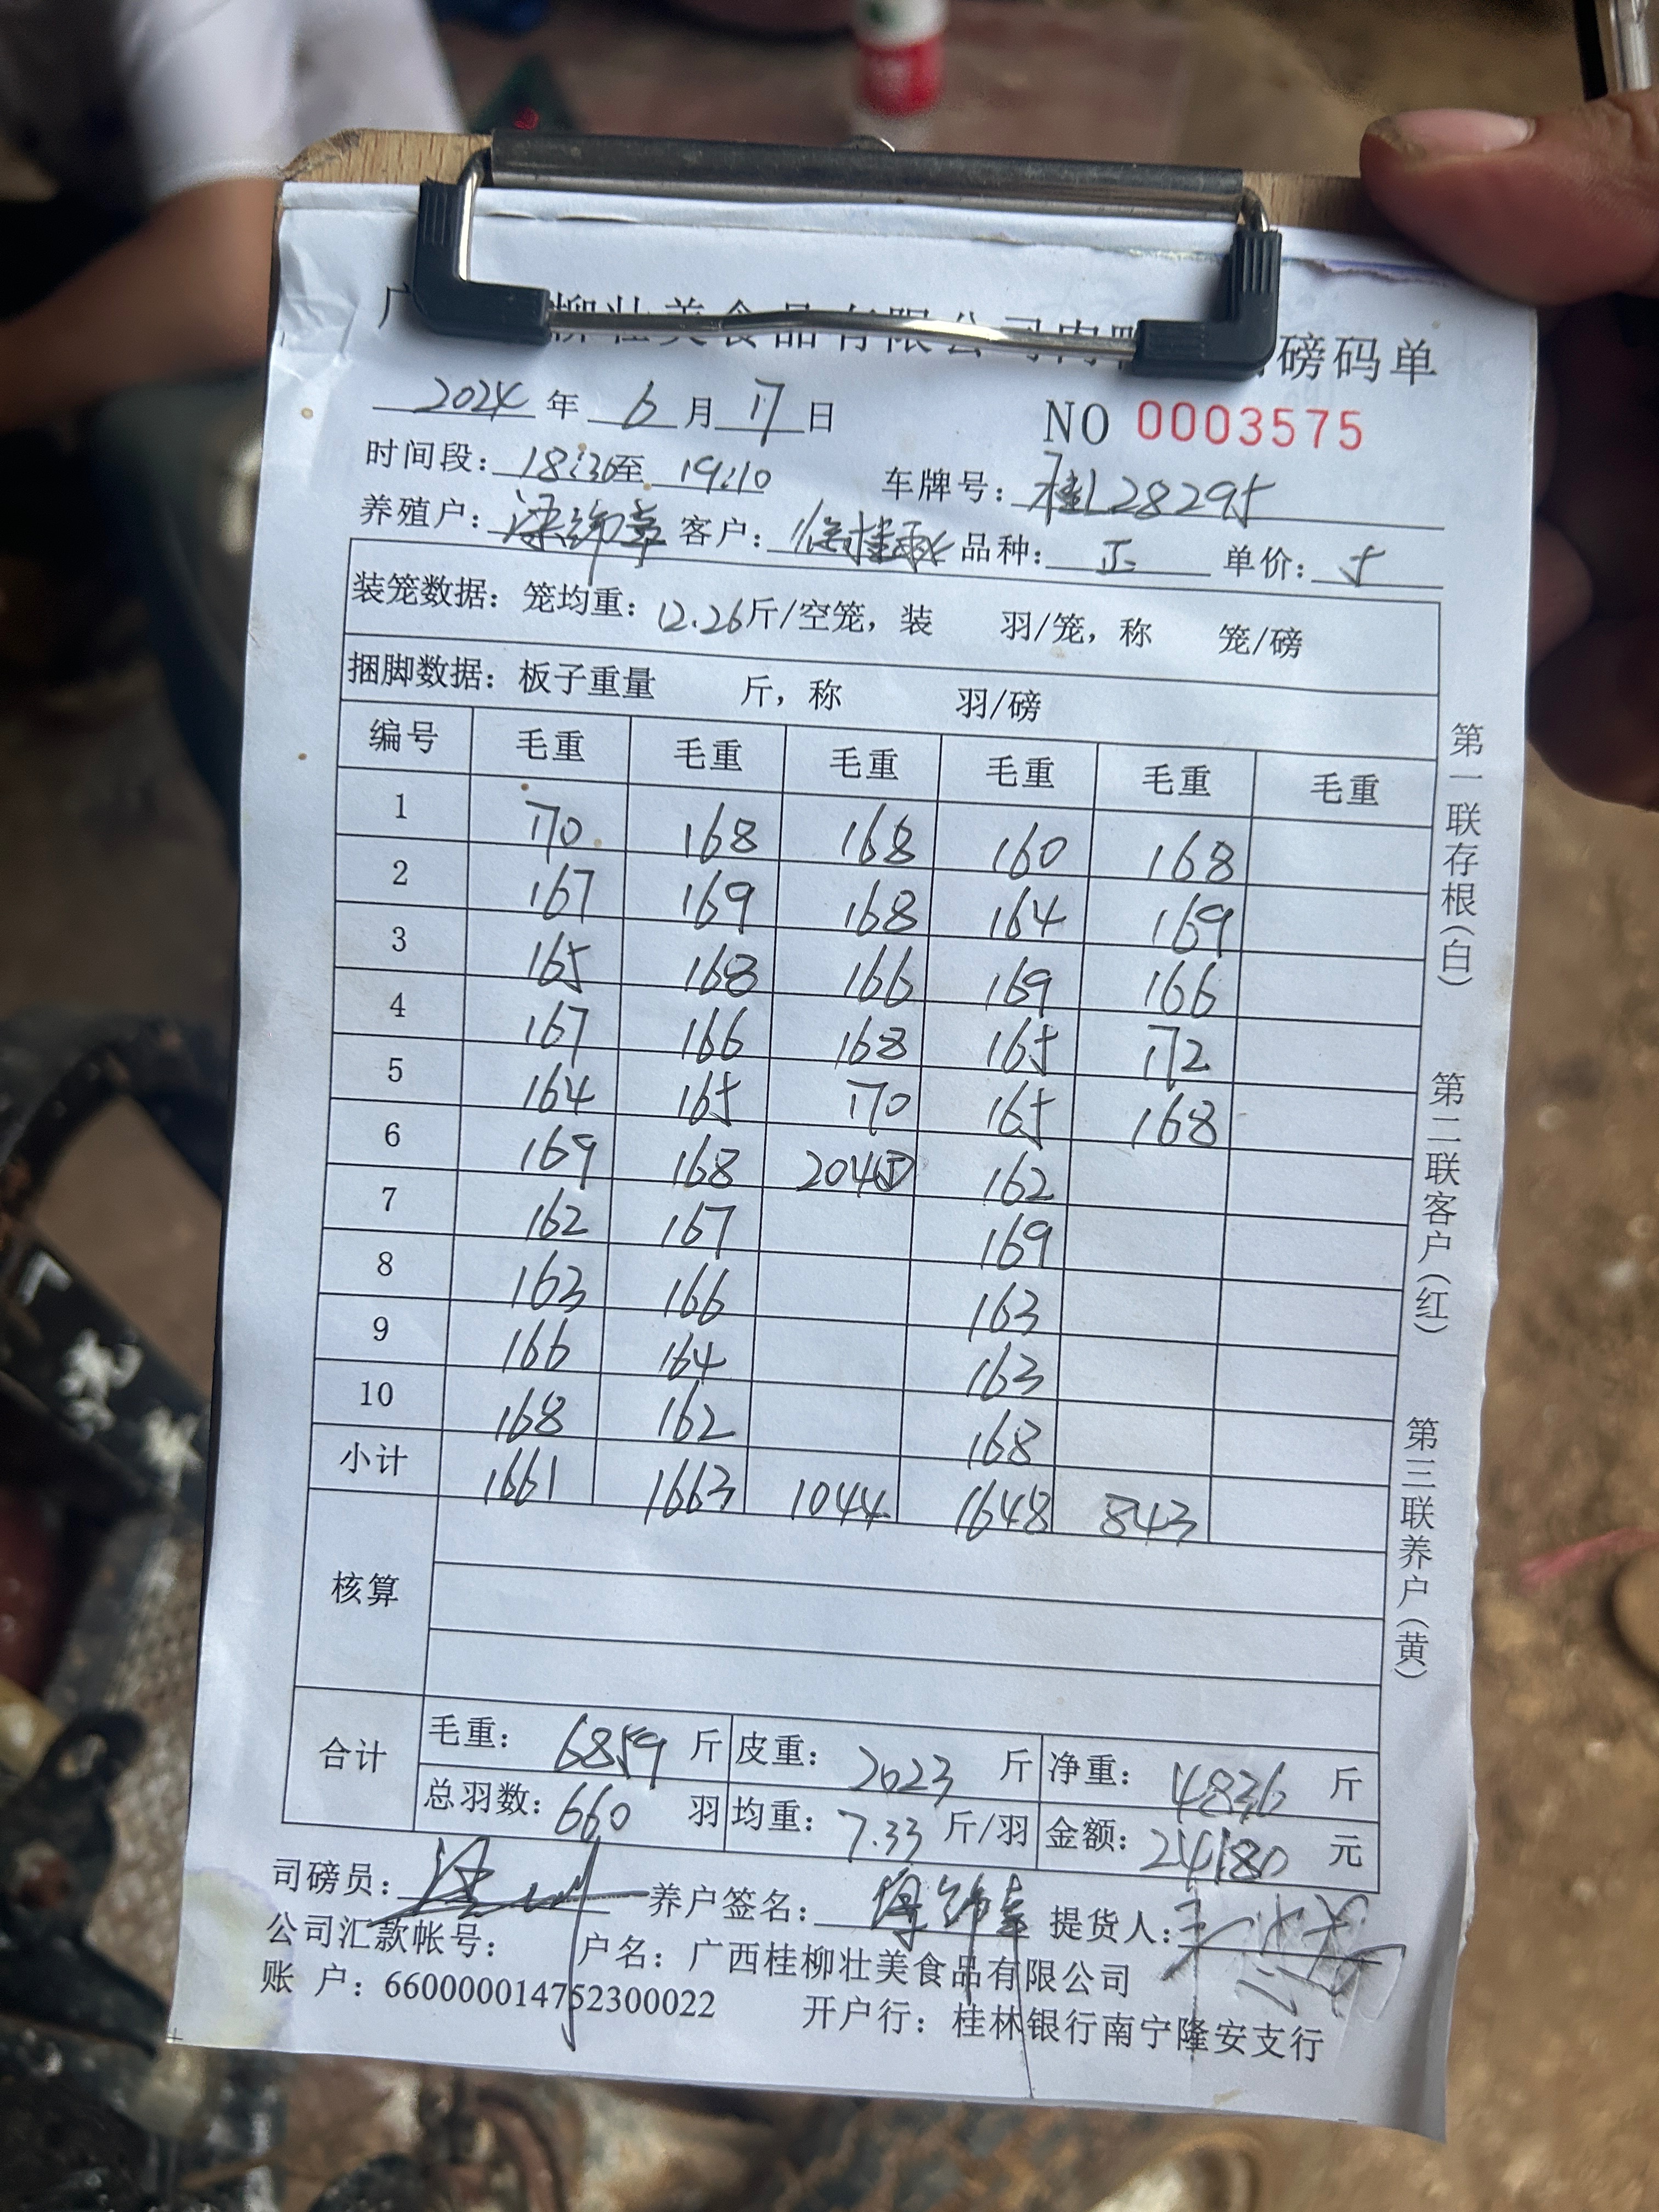 柳壮美食品有限公司肉鸭 磅码单
2024 年 6 月 17 日 NO 0003575
时间段: 18:36至 19:10 车牌号: 桂L28295
养殖户: 梁绵章 客户: 品种: 正 单价: 5
装笼数据: 笼均重: 12.26斤/空笼, 装 羽/笼, 称 笼/磅
捆脚数据: 板子重量 斤, 称 羽/磅
编号 毛重 毛重 毛重 毛重 毛重 毛重
1 170 168 168 160 168
2 167 169 168 164 169
3 165 168 166 169 166
4 167 166 168 165 172
5 164 165 170 165 168
6 169 168 204⑤ 162
7 162 167 169
8 163 166 163
9 166 164 163
10 168 162 168
小计 1661 1663 1044 1648 843
核算
合计 毛重: 6859 斤 皮重: 2023 斤 净重: 4836 斤
总羽数: 660 羽 均重: 7.33 斤/羽 金额: 24180 元
司磅员: 养户签名: 提货人:
公司汇款帐号: 户名: 广西桂柳壮美食品有限公司
账 户: 660000014752300022 开户行: 桂林银行南宁隆安支行
第一联存根(白) 第二联客户(红) 第三联养户(黄)